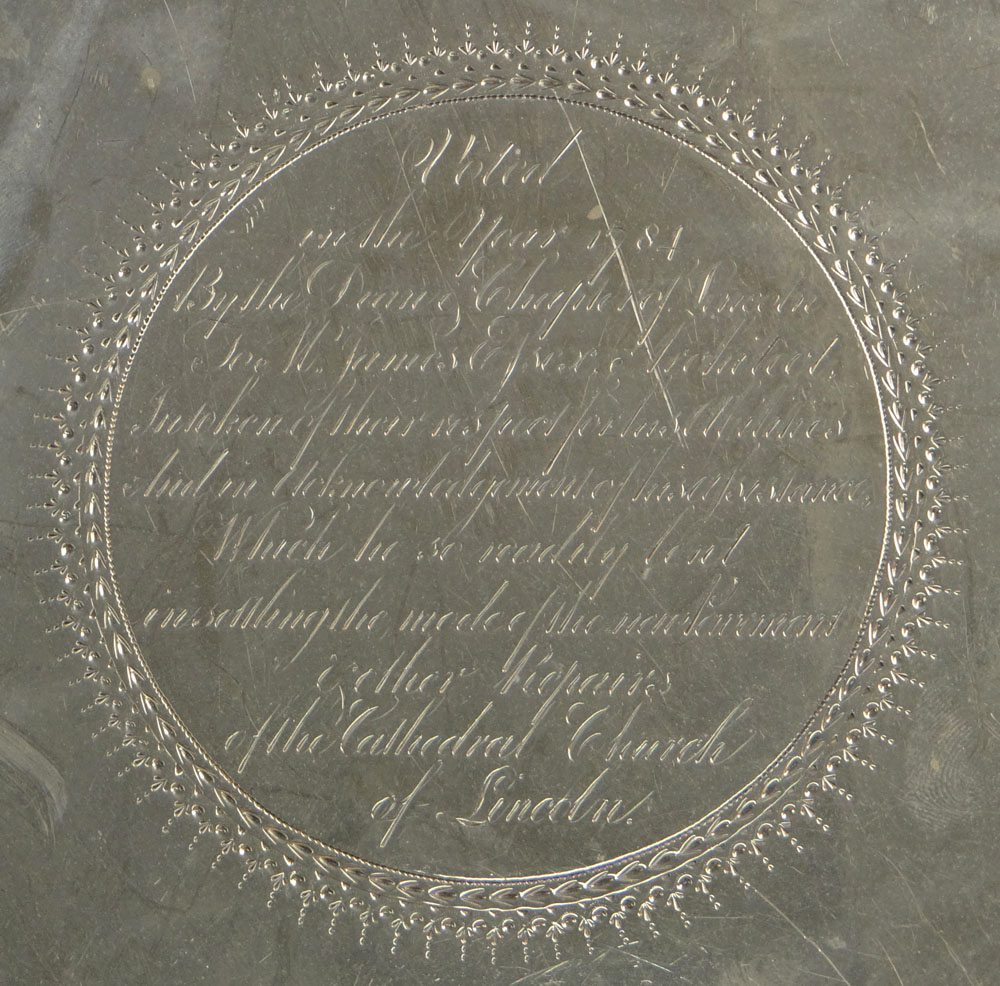 Voted
in the Year 1784
By the Dean & Chapter of Lincoln
To Mr. James Essex, Architect,
In token of their respect for his Abilities
And in Acknowledgement of his assistance,
Which he so readily lent
in settling the mode of the new Pavement
& other Repairs
of the Cathedral Church
of Lincoln.